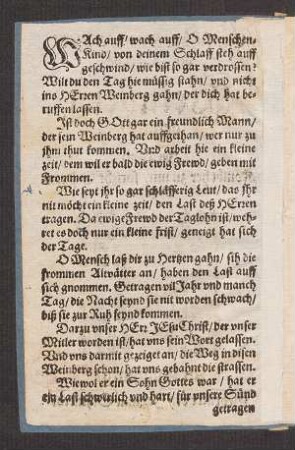 WAch auff/ wach auff/ O Menschen-
Kind/ von deinem Schlaff steh auff
geschwind/ wie bist so gar verdrossen?
Wilt du den Tag hie müssig stahn/ vnd nicht
ins HErren Weinberg gahn/ der dich hat be-
ruffen lassen.
Ist doch GOtt gar ein freundlich Mann/
der sein Weinberg hat auffgethan/ wer nur zu
ihm thut kommen. Vnd arbeit hie ein kleine
zeit/ dem wil er bald die ewig Frewd/ geben mit
Frommen.
Wie seyt jhr so gar schläfferig Leut/ das jhr
nit möcht ein kleine zeit/ den Last deß HErren
tragen. Da ewige Frewd der Taglohn ist/ weh-
ret es doch nur ein kleine frist/ geneigt hat sich
der Tage.
O Mensch laß dir zu Hertzen gahn/ sih die
frommen Altvätter an/ haben den Last auff
sich gnommen. Getragen vil Jahr vnd manch
Tag/ die Nacht seynd sie nit worden schwach/
biß sie zur Ruh seynd kommen.
Darzu vnser HErr JEsu Christ/ der vnser
Mitler worden ist/ hat vns sein Wort gelassen.
Vnd vns darmit gezeiget an/ die Weg in disen
Weinberg schon/ hat vns gebahnt die strassen.
Wiewol er ein Sohn Gottes war/ hat er
ein Last schwerlich vnd hart/ für vnsere Sünd
getragen